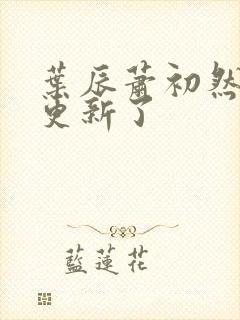 葉辰蕭初然
更新了
藍蓮花